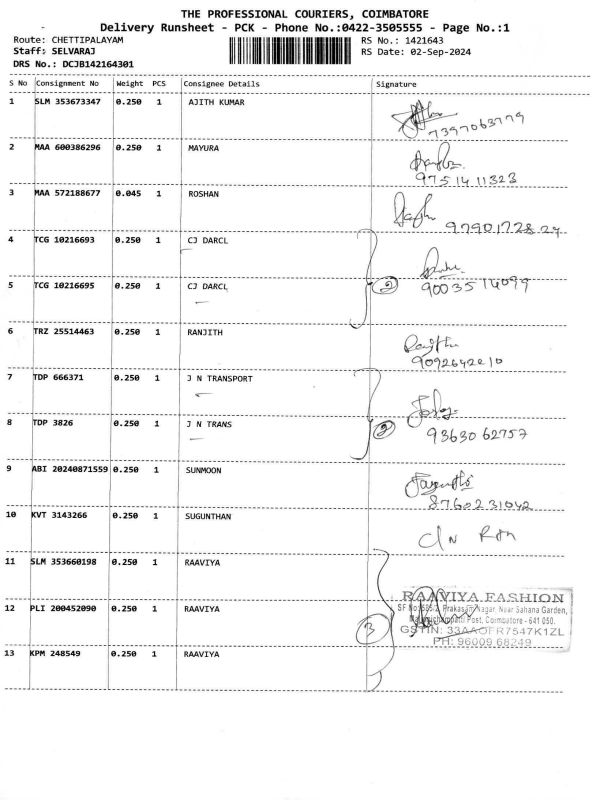 THE PROFESSIONAL COURIERS, COIMBATORE
Delivery Runsheet - PCK - Phone No.:0422-3505555 - Page No.:1
Route: CHETTIPALAYAM RS No.: 1421643
Staff: SELVARAJ RS Date: 02-Sep-2024
DRS No.: DCJB142164301
S No Consignment No Weight PCS Consignee Details Signature
1 SLM 353673347 0.250 1 AJITH KUMAR
7397063779
2 MAA 600386296 0.250 1 MAYURA
9751411323
3 MAA 572188677 0.045 1 ROSHAN
9790172827
4 TCG 10216693 0.250 1 CJ DARCL
5 TCG 10216695 0.250 1 CJ DARCL
2 9003514099
6 TRZ 25514463 0.250 1 RANJITH
9092642210
7 TDP 666371 0.250 1 J N TRANSPORT
8 TDP 3826 0.250 1 J N TRANS
2 9363062757
9 ABI 20240871559 0.250 1 SUNMOON
8760231042
10 KVT 3143266 0.250 1 SUGUNTHAN
11 SLM 353660198 0.250 1 RAAVIYA
RAAVIYA FASHION
12 PLI 200452090 0.250 1 RAAVIYA
SF No:585/2, Prakasam Nagar, Near Sahana Garden,
Post, Coimbatore - 641 050.
3 GSTIN: 33AAOFR7547K1ZL
PH: 96009 68249
13 KPM 248549 0.250 1 RAAVIYA